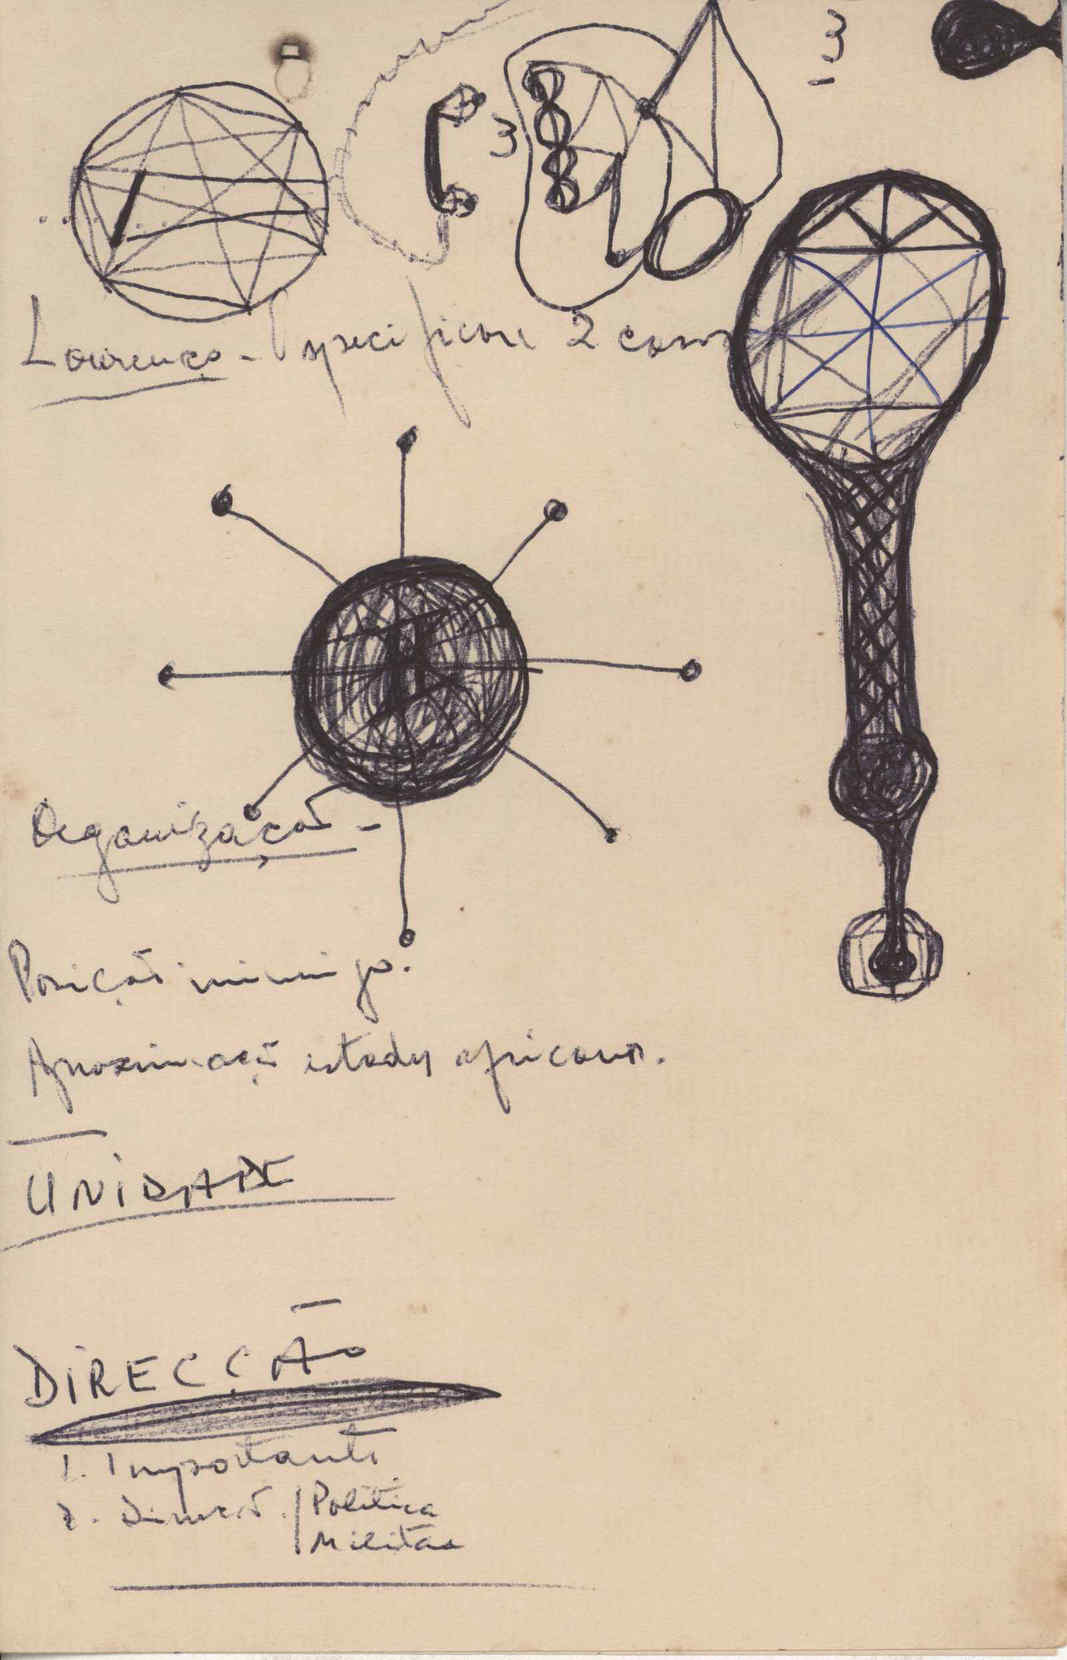 3
3
Lourenço - Especificar 2 casos
Organização -
Posição inimigo.
Aproximação estados africanos.
UNIDADE
DIRECÇÃO
1. Importante
2. Direcção. / Política
Militar